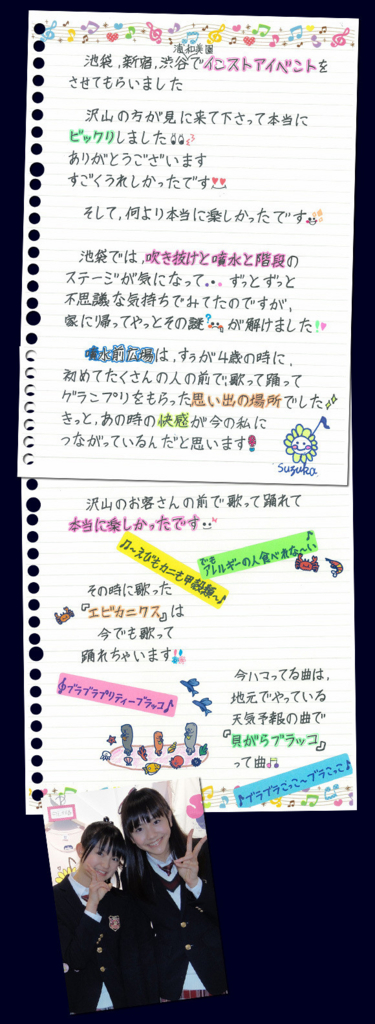 浦和美園
池袋,新宿,渋谷でインストアイベントを
させてもらいました
沢山の方が見に来て下さって本当に
ビックリしました
ありがとうございます
すごくうれしかったです
そして,何より本当に楽しかったです
池袋では,吹き抜けと噴水と階段の
ステージが気になって... ずっとずっと
不思議な気持ちでみてたのですが,
家に帰ってやっとその謎?が解けました!
噴水前広場は,すぅが4歳の時に,
初めてたくさんの人の前で,歌って踊って
グランプリをもらった思い出の場所でした
きっと,あの時の快感が今の私に
つながっているんだと思います
suzuka.
沢山のお客さんの前で歌って踊れて
本当に楽しかったです
♪〜えびもカニも甲殻類〜♪
でも
アレルギーの人食べれな〜い♪
その時に歌った
『エビカニクス』は
今でも歌って
踊れちゃいます!!
♪ブラブラプリティーブラッコ♪
今ハマってる曲は,
地元でやっている
天気予報の曲で
『貝がらブラッコ』
って曲
♪ブラブラごっこ〜ブラこっこ♪